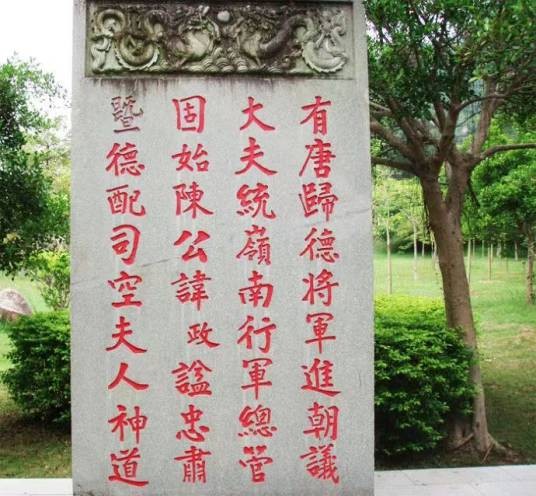 有唐歸德將軍進朝議
大夫統嶺南行軍總管
固始陳公諱政謚忠肅
暨德配司空夫人神道